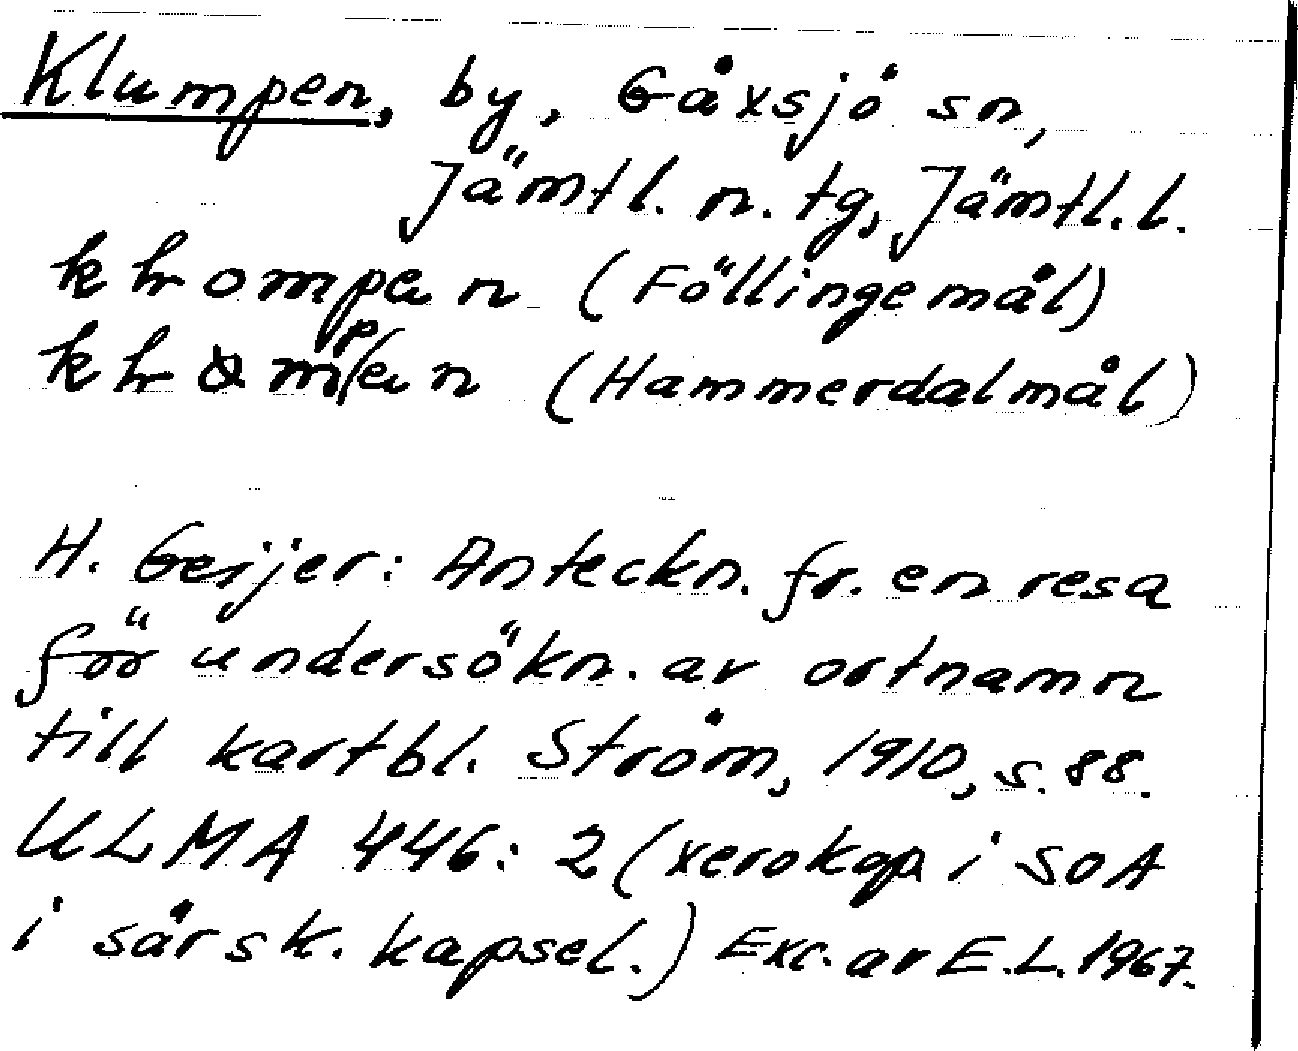 Klumpen, by, Gåxsjö sn,
Jämtl. n. tg, Jämtl. l.
(Föllingemål)
(Hammerdalmål)
H. Geijer: Anteckn. fr. en resa
för undersökn. av ortnamn
till kartbl. Ström, 1910, s. 88.
ULMA 446: 2 (xerokop i SOA
i särsk. kapsel.) Exc. av E.L. 1967.